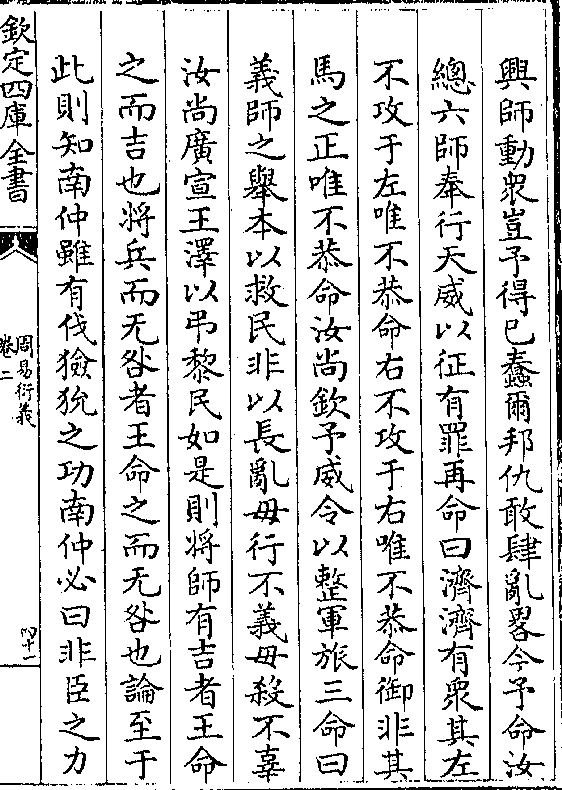 興師動衆豈予得已蠢爾邦仇敢肆亂畧今予命汝
總六師奉行天威以征有罪再命曰濟濟有衆其左
不攻于左唯不恭命右不攻于右唯不恭命御非其
馬之正唯不恭命汝尚欽予威令以整軍旅三命曰
義師之舉本以救民非以長亂毋行不義毋殺不辜
汝尚廣宣王澤以弔黎民如是則將師有吉者王命
之而吉也將兵而无咎者王命之而无咎也論至于
此則知南仲雖有伐獫狁之功南仲必曰非臣之力
欽定四庫全書
周易衍義
卷二
四十一